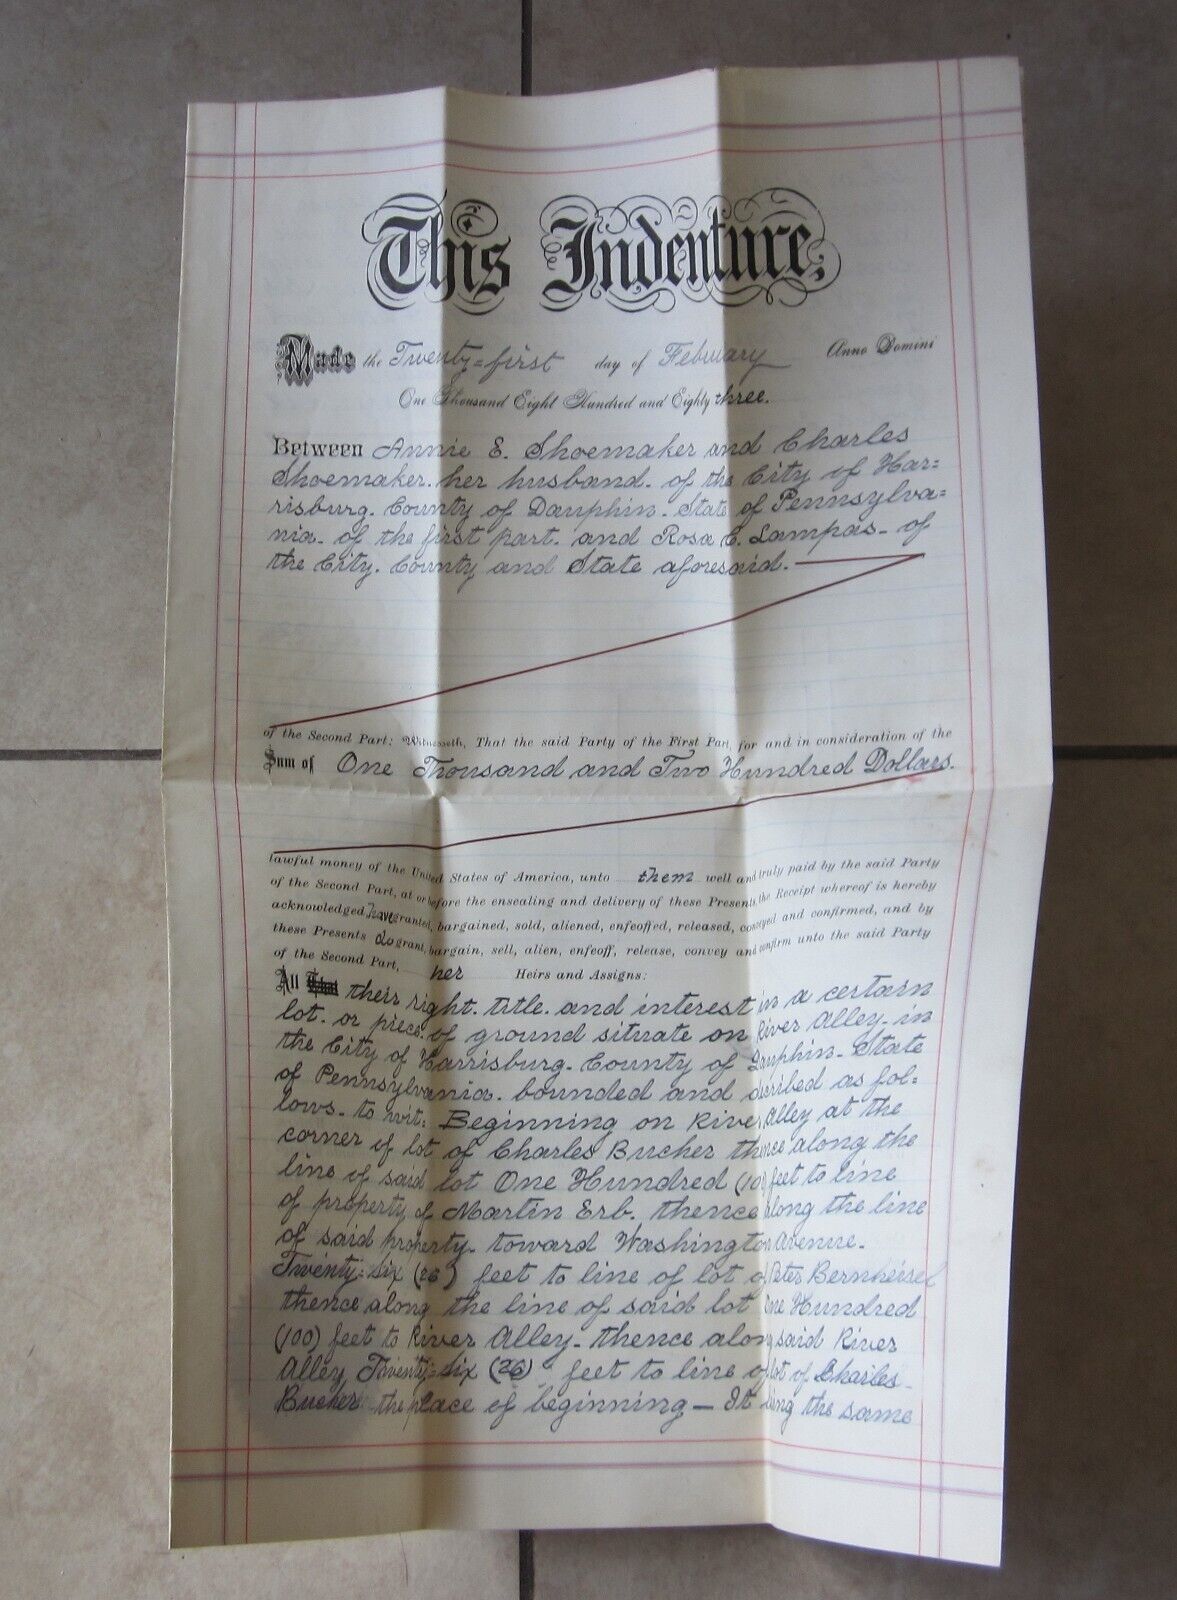 This Indenture,
Made the Twenty=first day of February Anno Domini
One Thousand Eight Hundred and Eighty three.
Between Annie E. Shoemaker and Charles
Shoemaker. her husband. of the City of Har=
risburg. County of Dauphin. State of Pennsylva=
nia. of the first part. and Rosa C. Lampas. of
the City. County and State aforesaid.
of the Second Part: Witnesseth, That the said Party of the First Part, for and in consideration of the
Sum of One Thousand and Two Hundred Dollars.
lawful money of the United States of America, unto them well and truly paid by the said Party
of the Second Part, at or before the ensealing and delivery of these Presents, the Receipt whereof is hereby
acknowledged, have granted, bargained, sold, aliened, enfeoffed, released, conveyed and confirmed, and by
these Presents do grant, bargain, sell, alien, enfeoff, release, convey and confirm unto the said Party
of the Second Part, her Heirs and Assigns:
All That their right. title. and interest in a certain
lot. or piece. of ground situate on River Alley. in
the City of Harrisburg. County of Dauphin. State
of Pennsylvania. bounded and described as fol=
lows. to wit: Beginning on River Alley at the
corner of lot of Charles Bucher thence along the
line of said lot One Hundred (100) feet to line
of property of Martin Erb. thence along the line
of said property. toward Washington Avenue.
Twenty=six (26) feet to line of lot of Peter Bernheisel
thence along the line of said lot One Hundred
(100) feet to River Alley. thence along said River
Alley Twenty=six (26) feet to line of lot of Charles
Bucher the place of beginning — It being the same